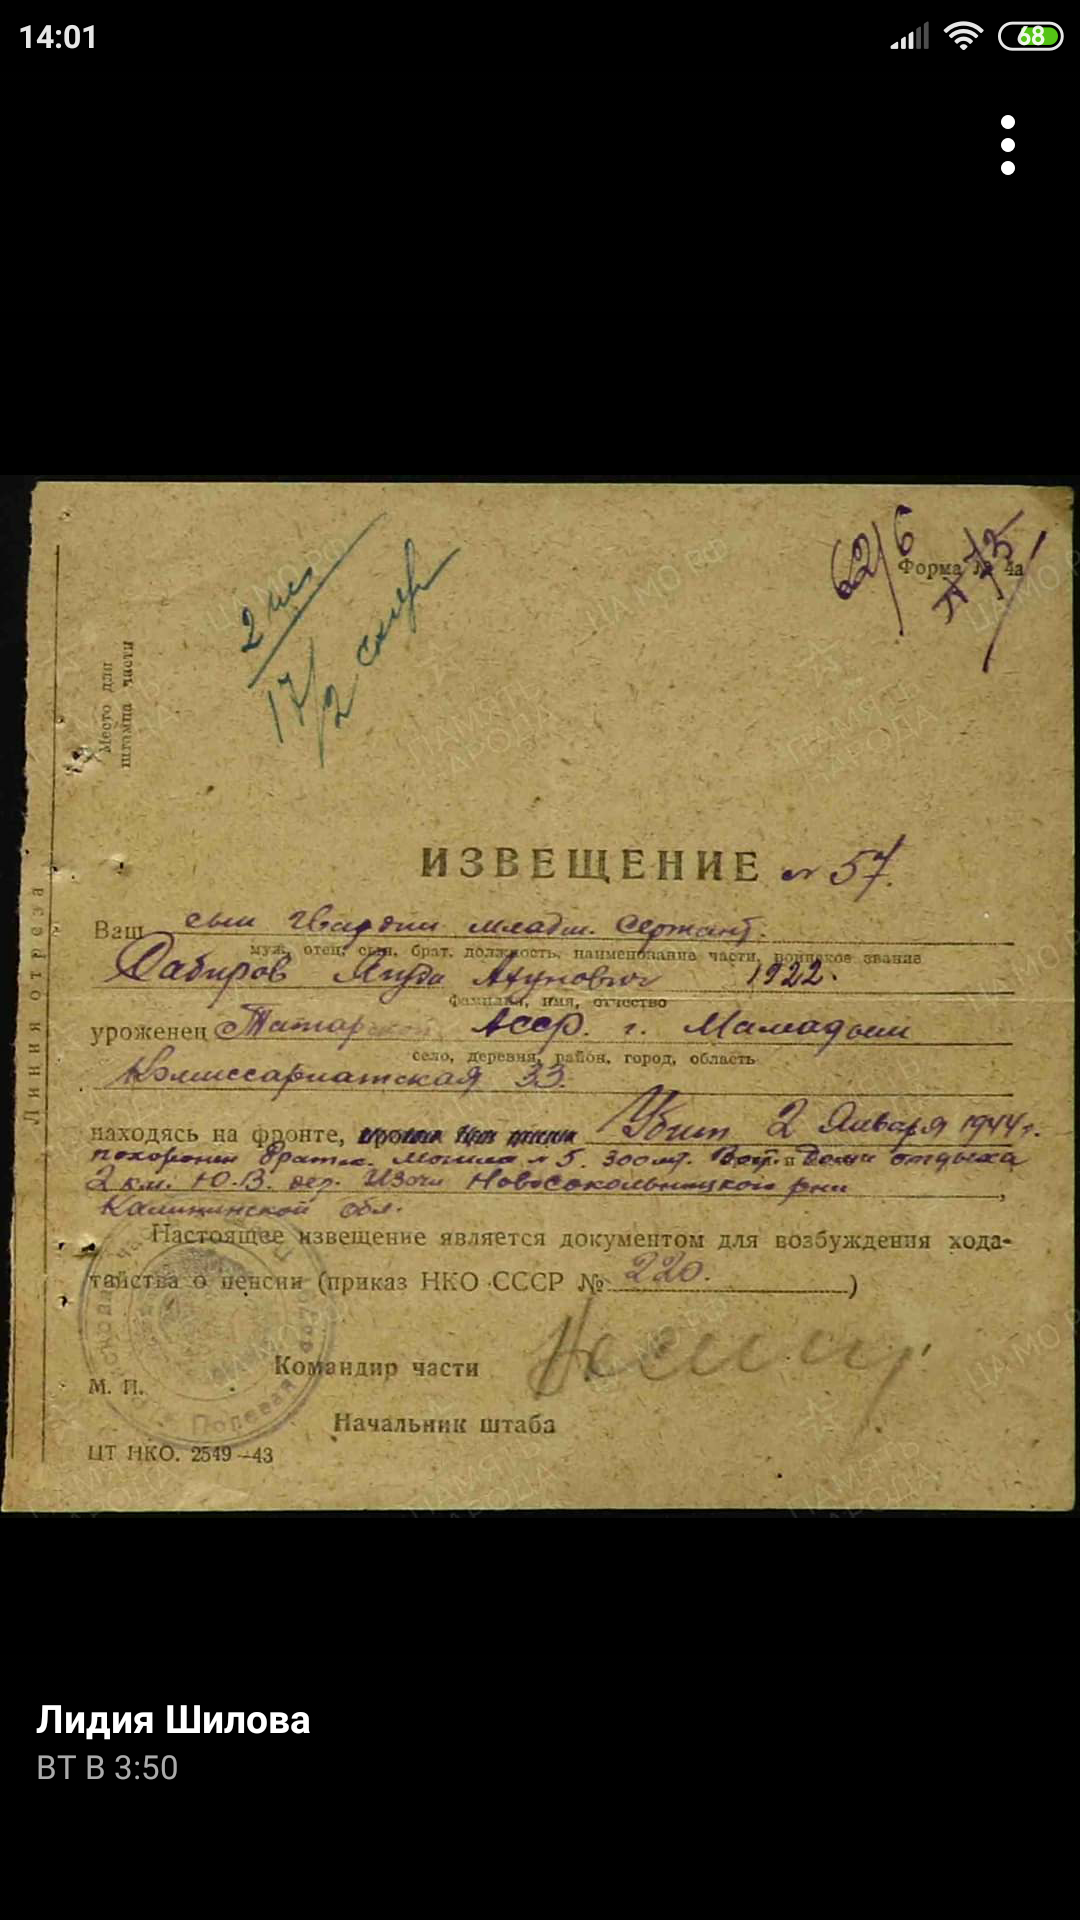 14:01
68
62/6
Форма № 4а
2
17/2
Место для
штампа части
Линия отреза
ИЗВЕЩЕНИЕ № 57.
Ваш сын гвардии младш. сержант.
муж, отец, сын, брат, должность, наименование части, воинское звание
Сабиров Ягуда Ахунович 1922.
фамилия, имя, отчество
уроженец Татарской АССР. г. Мамадыш
село, деревня, район, город, область
Комиссариатская 33.
находясь на фронте, Убит 2 Января 1944 г.
похоронен братск. могила № 5. 300 мт. отдыха
2 км. Ю.В. дер. Изочи Новосокольницкого р-на
Калининской обл.
Настоящее извещение является документом для возбуждения хода-
тайства о пенсии (приказ НКО СССР № 220.)
Командир части
М. П.
Полевая
Начальник штаба
ЦТ НКО. 2549—43
ЦА МО РФ
ПАМЯТЬ НАРОДА
Лидия Шилова
ВТ В 3:50